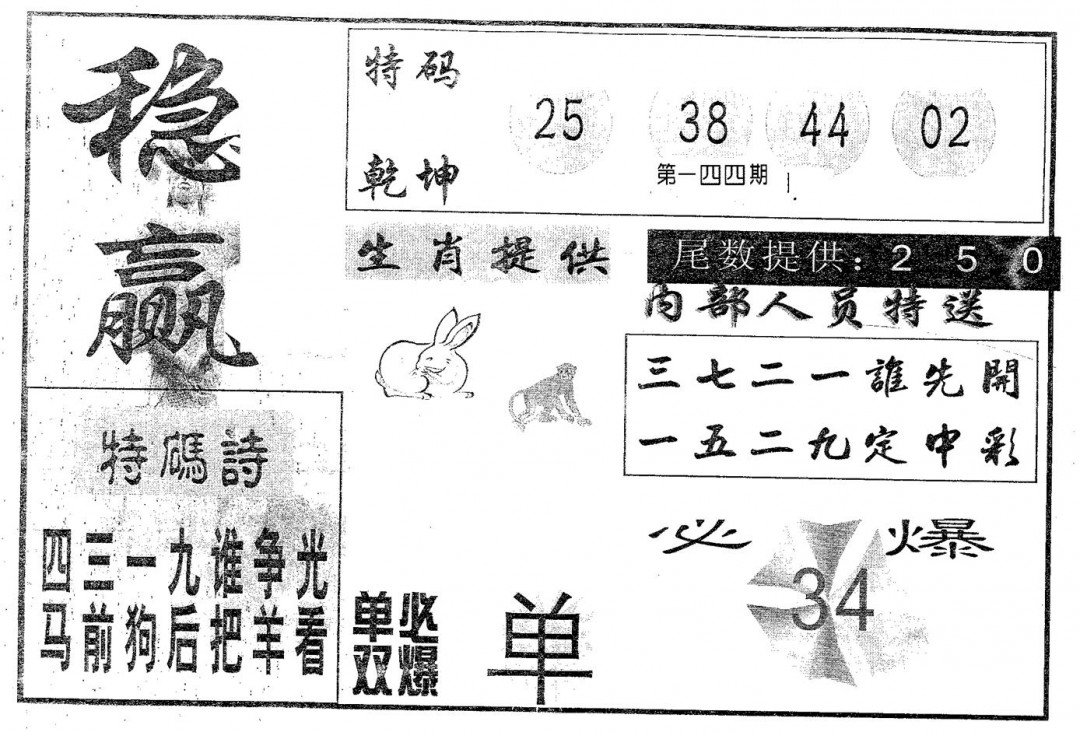 稳
赢
特码
乾坤
25 38 44 02
第一四四期
生肖提供
尾数提供: 2 5 0
内部人员特送
三七二一誰先開
一五二九定中彩
特碼詩
四三一九谁争光
马前狗后把羊看
单双
必爆
单
必爆
34